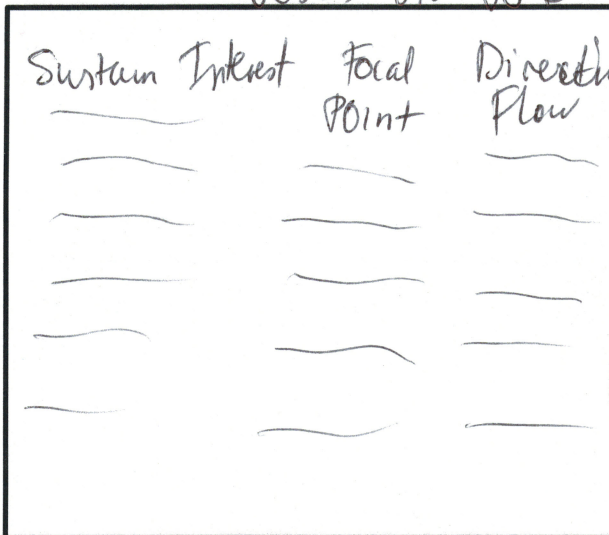 Sustain Interest Focal
Point
Flow